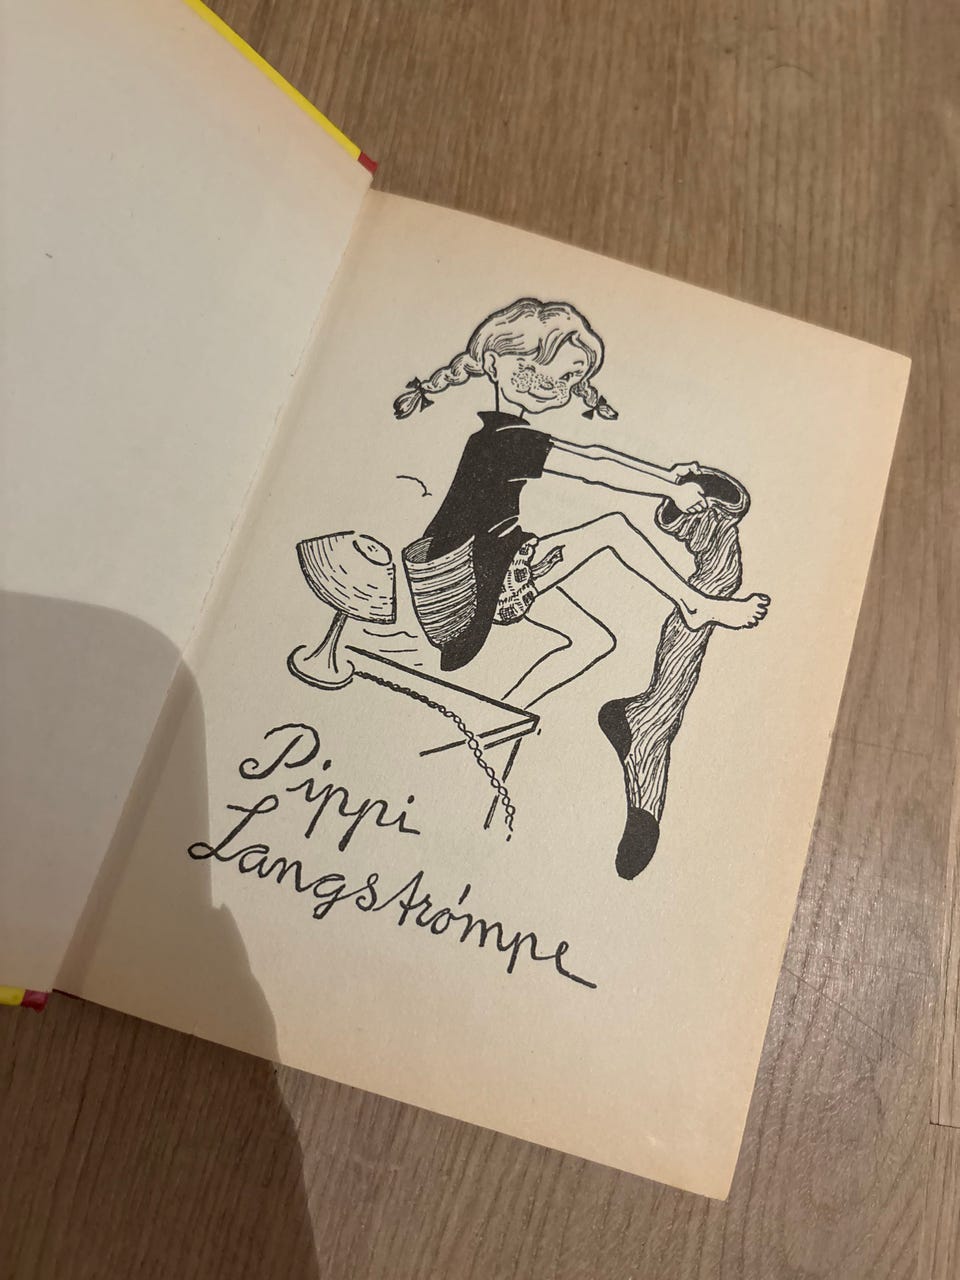 Pippi
Langstrómpe